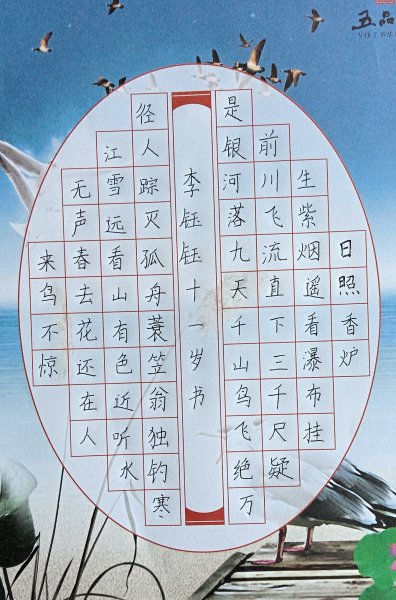 五品
日照香炉
生紫烟遥看瀑布挂
前川飞流直下三千尺疑
是银河落九天千山鸟飞绝万
径人踪灭孤舟蓑笠翁独钓寒
江雪远看山有色近听水
无声春去花还在人
来鸟不惊
李钰钰十一岁书